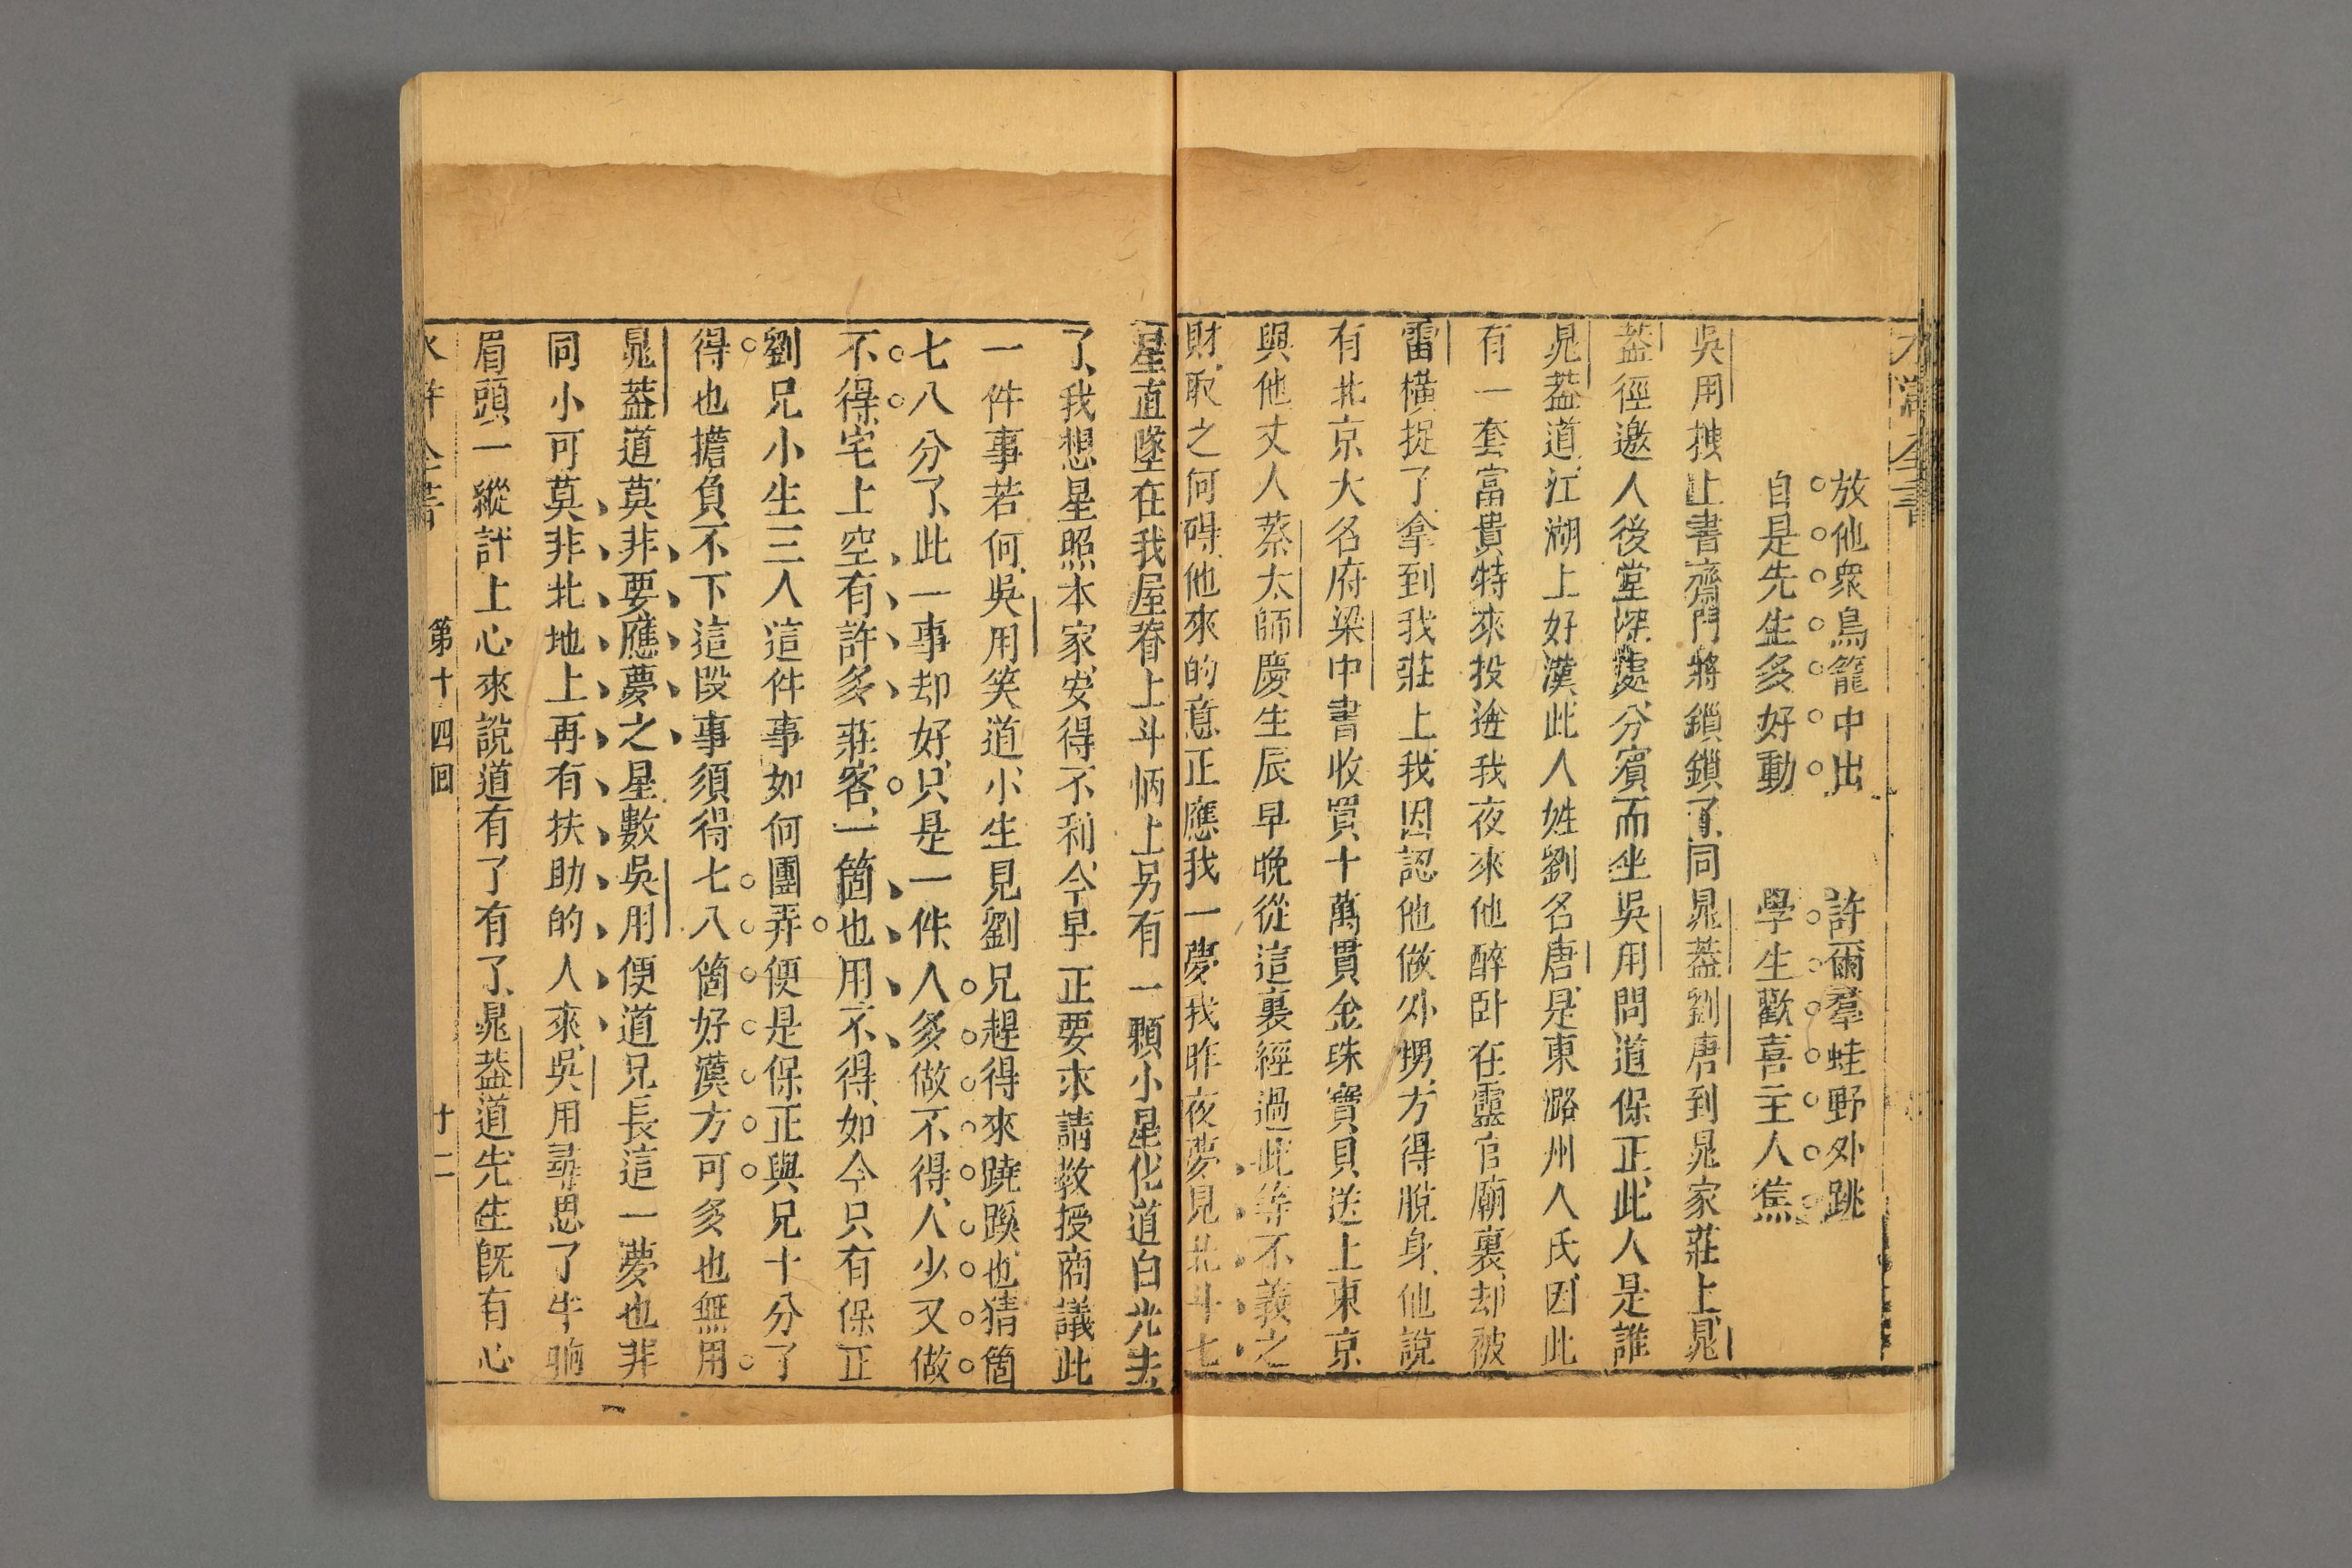 水滸全書
放他衆鳥籠中出　許爾羣蛙野外跳
自是先生多好動　學生歡喜主人焦
吳用拽上書齋門將鎖鎖了同晁蓋劉唐到晁家莊上晁
蓋徑邀入後堂深處分賓而坐吳用問道保正此人是誰
晁蓋道江湖上好漢此人姓劉名唐是東潞州人氏因此
有一套富貴特來投逩我夜來他醉卧在靈官廟裏却被
雷橫捉了拿到我莊上我因認他做外甥方得脫身他說
有北京大名府梁中書收買十萬貫金珠寶貝送上東京
與他丈人蔡太師慶生辰早晚從這裏經過此等不義之
財取之何碍他來的意正應我一夢我昨夜夢見北斗七
星直墜在我屋脊上斗柄上另有一顆小星化道白光去
了我想星照本家安得不利今早正要求請教授商議此
一件事若何吳用笑道小生見劉兄趕得來蹺蹊也猜箇
七八分了此一事却好只是一件人多做不得人少又做
不得宅上空有許多莊客一箇也用不得如今只有保正
劉兄小生三人這件事如何團弄便是保正與兄十分了
得也擔負不下這段事須得七八箇好漢方可多也無用
晁蓋道莫非要應夢之星數吳用便道兄長這一夢也非
同小可莫非北地上再有扶助的人來吳用尋思了半晌
眉頭一縱計上心來說道有了有了晁蓋道先生旣有心
水滸全書　第十四回　十二